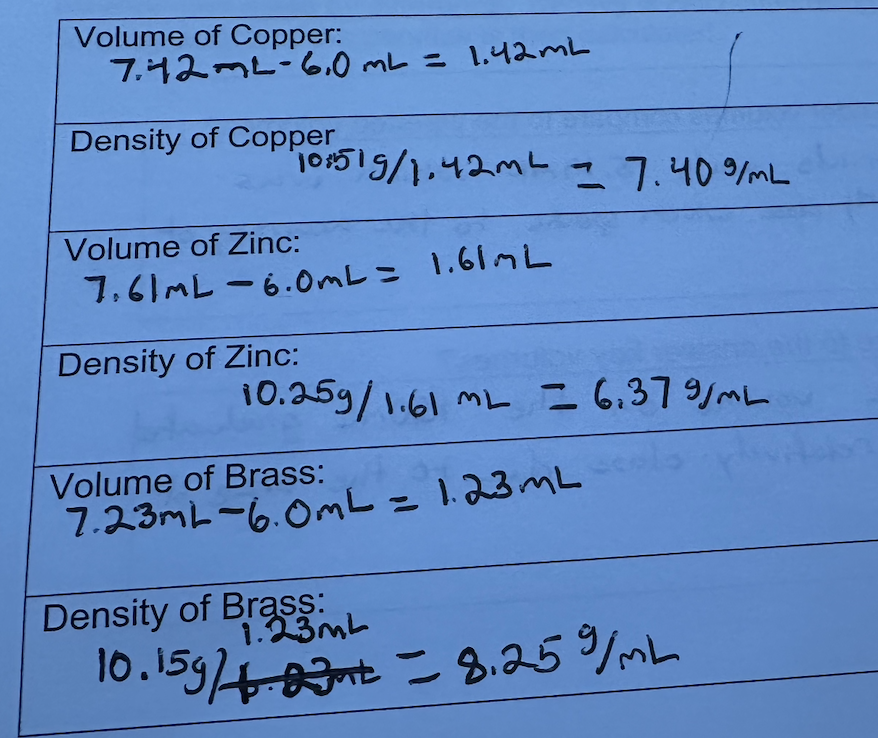 Volume of Copper:
7.42mL-6.0 mL = 1.42mL
Density of Copper
10.51g/1.42mL = 7.40 g/mL
Volume of Zinc:
7.61mL - 6.0mL = 1.61mL
Density of Zinc:
10.25g/1.61 mL = 6.37 g/mL
Volume of Brass:
7.23mL-6.0mL = 1.23mL
Density of Brass:
1.23mL
10.15g/ = 8.25 g/mL